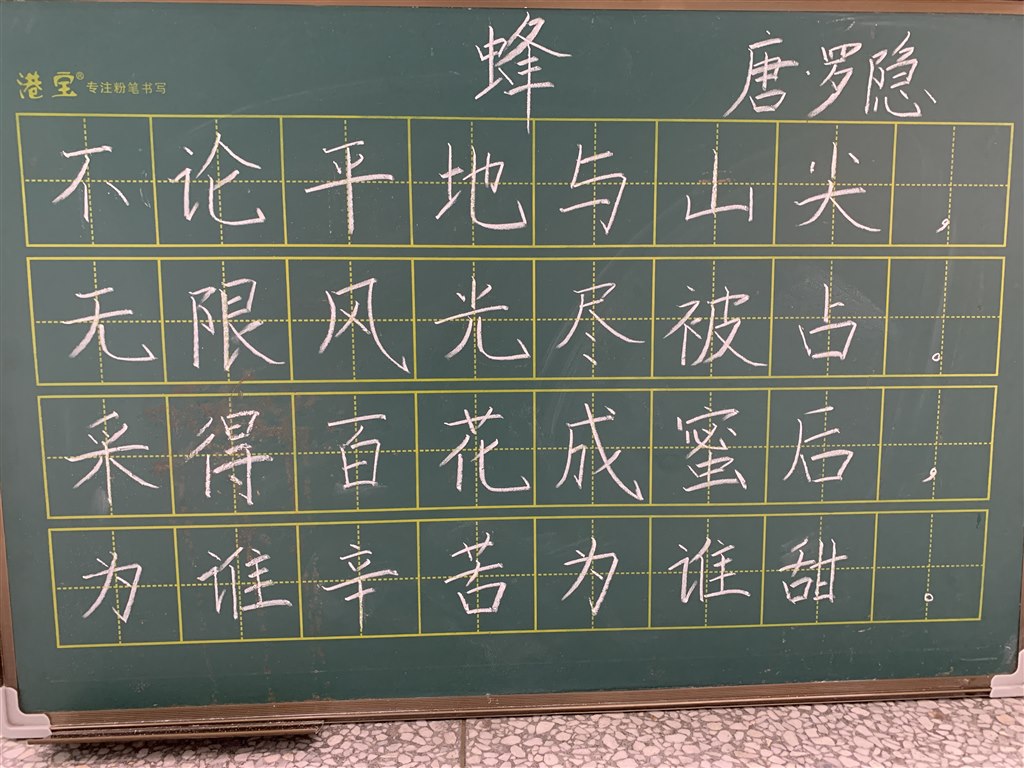 蜂 唐·罗隐
港宝® 专注粉笔书写
不论平地与山尖，
无限风光尽被占。
采得百花成蜜后，
为谁辛苦为谁甜。